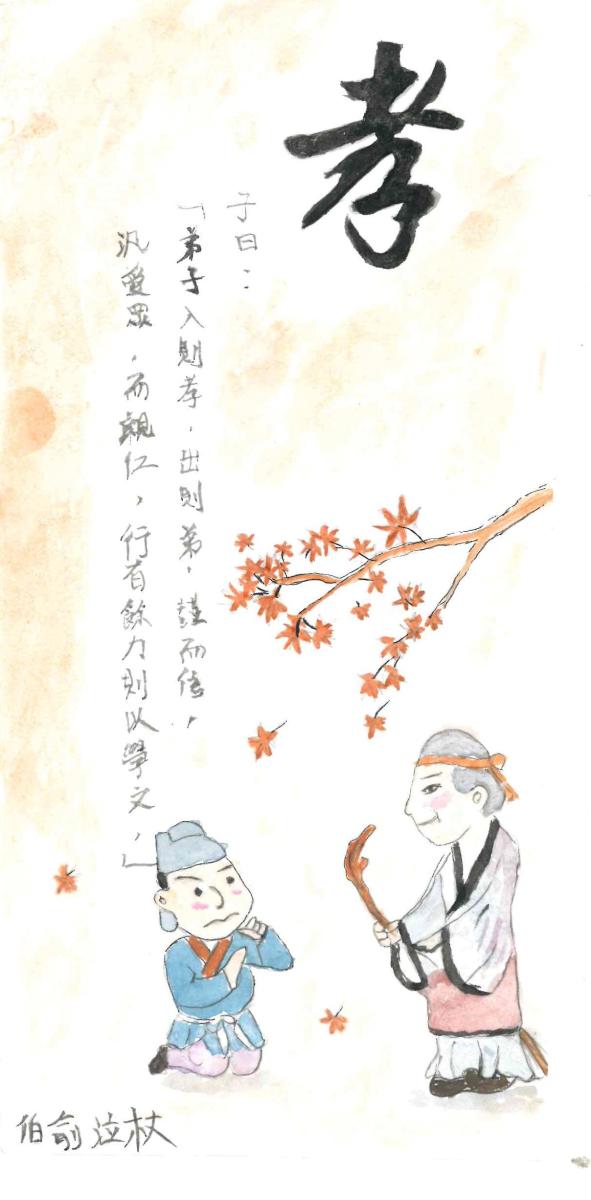 孝
子曰：
「弟子入則孝，出則弟，謹而信，
汎愛眾，而親仁，行有餘力則以學文，」
伯俞泣杖